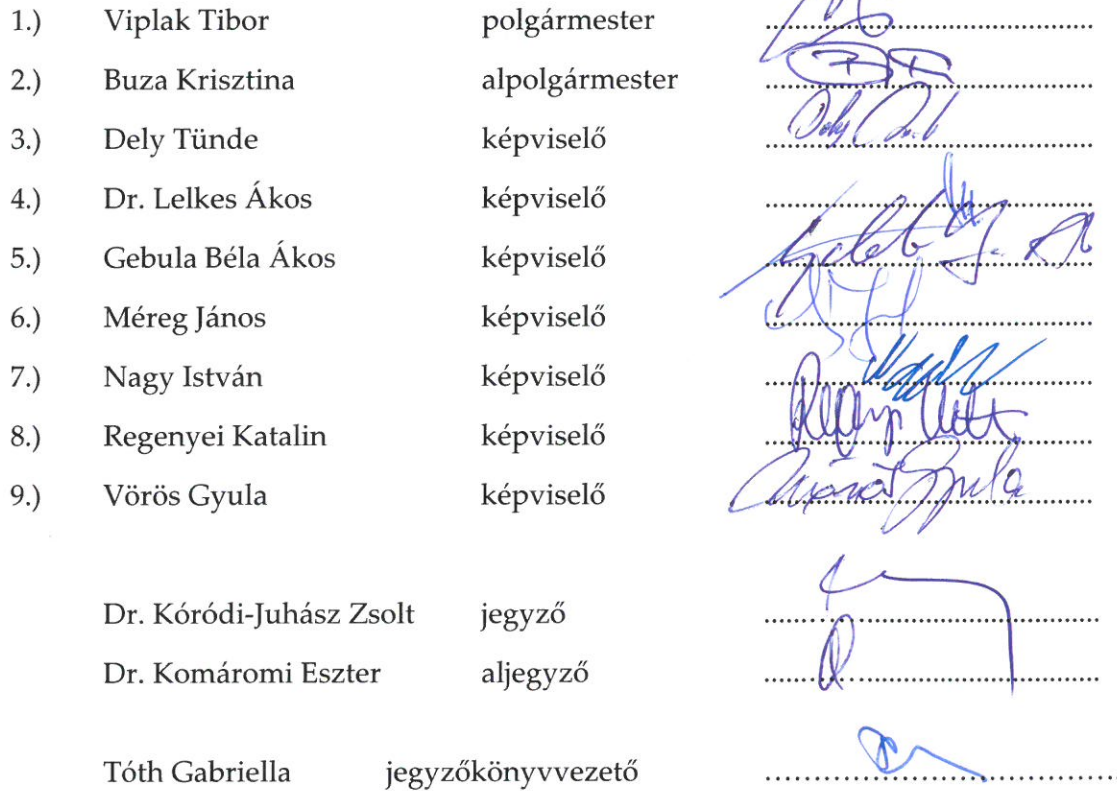 1.) Viplak Tibor polgármester
2.) Buza Krisztina alpolgármester
3.) Dely Tünde képviselő
4.) Dr. Lelkes Ákos képviselő
5.) Gebula Béla Ákos képviselő
6.) Méreg János képviselő
7.) Nagy István képviselő
8.) Regenyei Katalin képviselő
9.) Vörös Gyula képviselő
Dr. Kóródi-Juhász Zsolt jegyző
Dr. Komáromi Eszter aljegyző
Tóth Gabriella jegyzőkönyvvezető